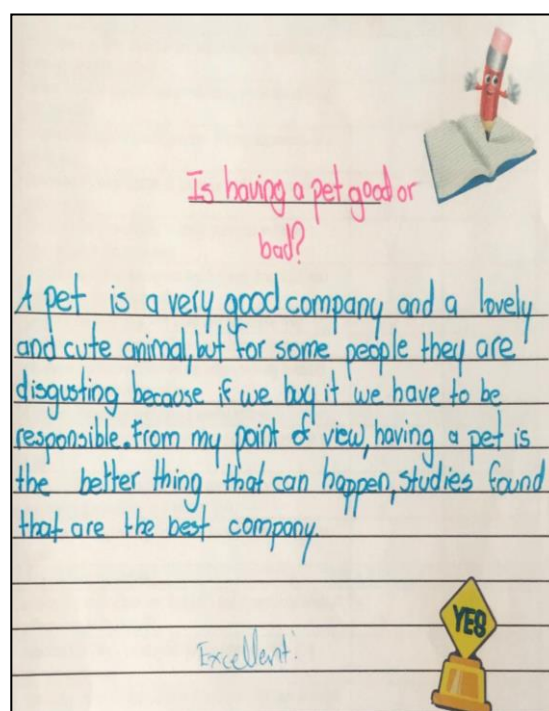 Is having a pet good or
bad?
A pet is a very good company and a lovely
and cute animal, but for some people they are
disgusting because if we buy it we have to be
responsible. From my point of view, having a pet is
the better thing that can happen, studies found
that are the best company.
Excellent!
YES